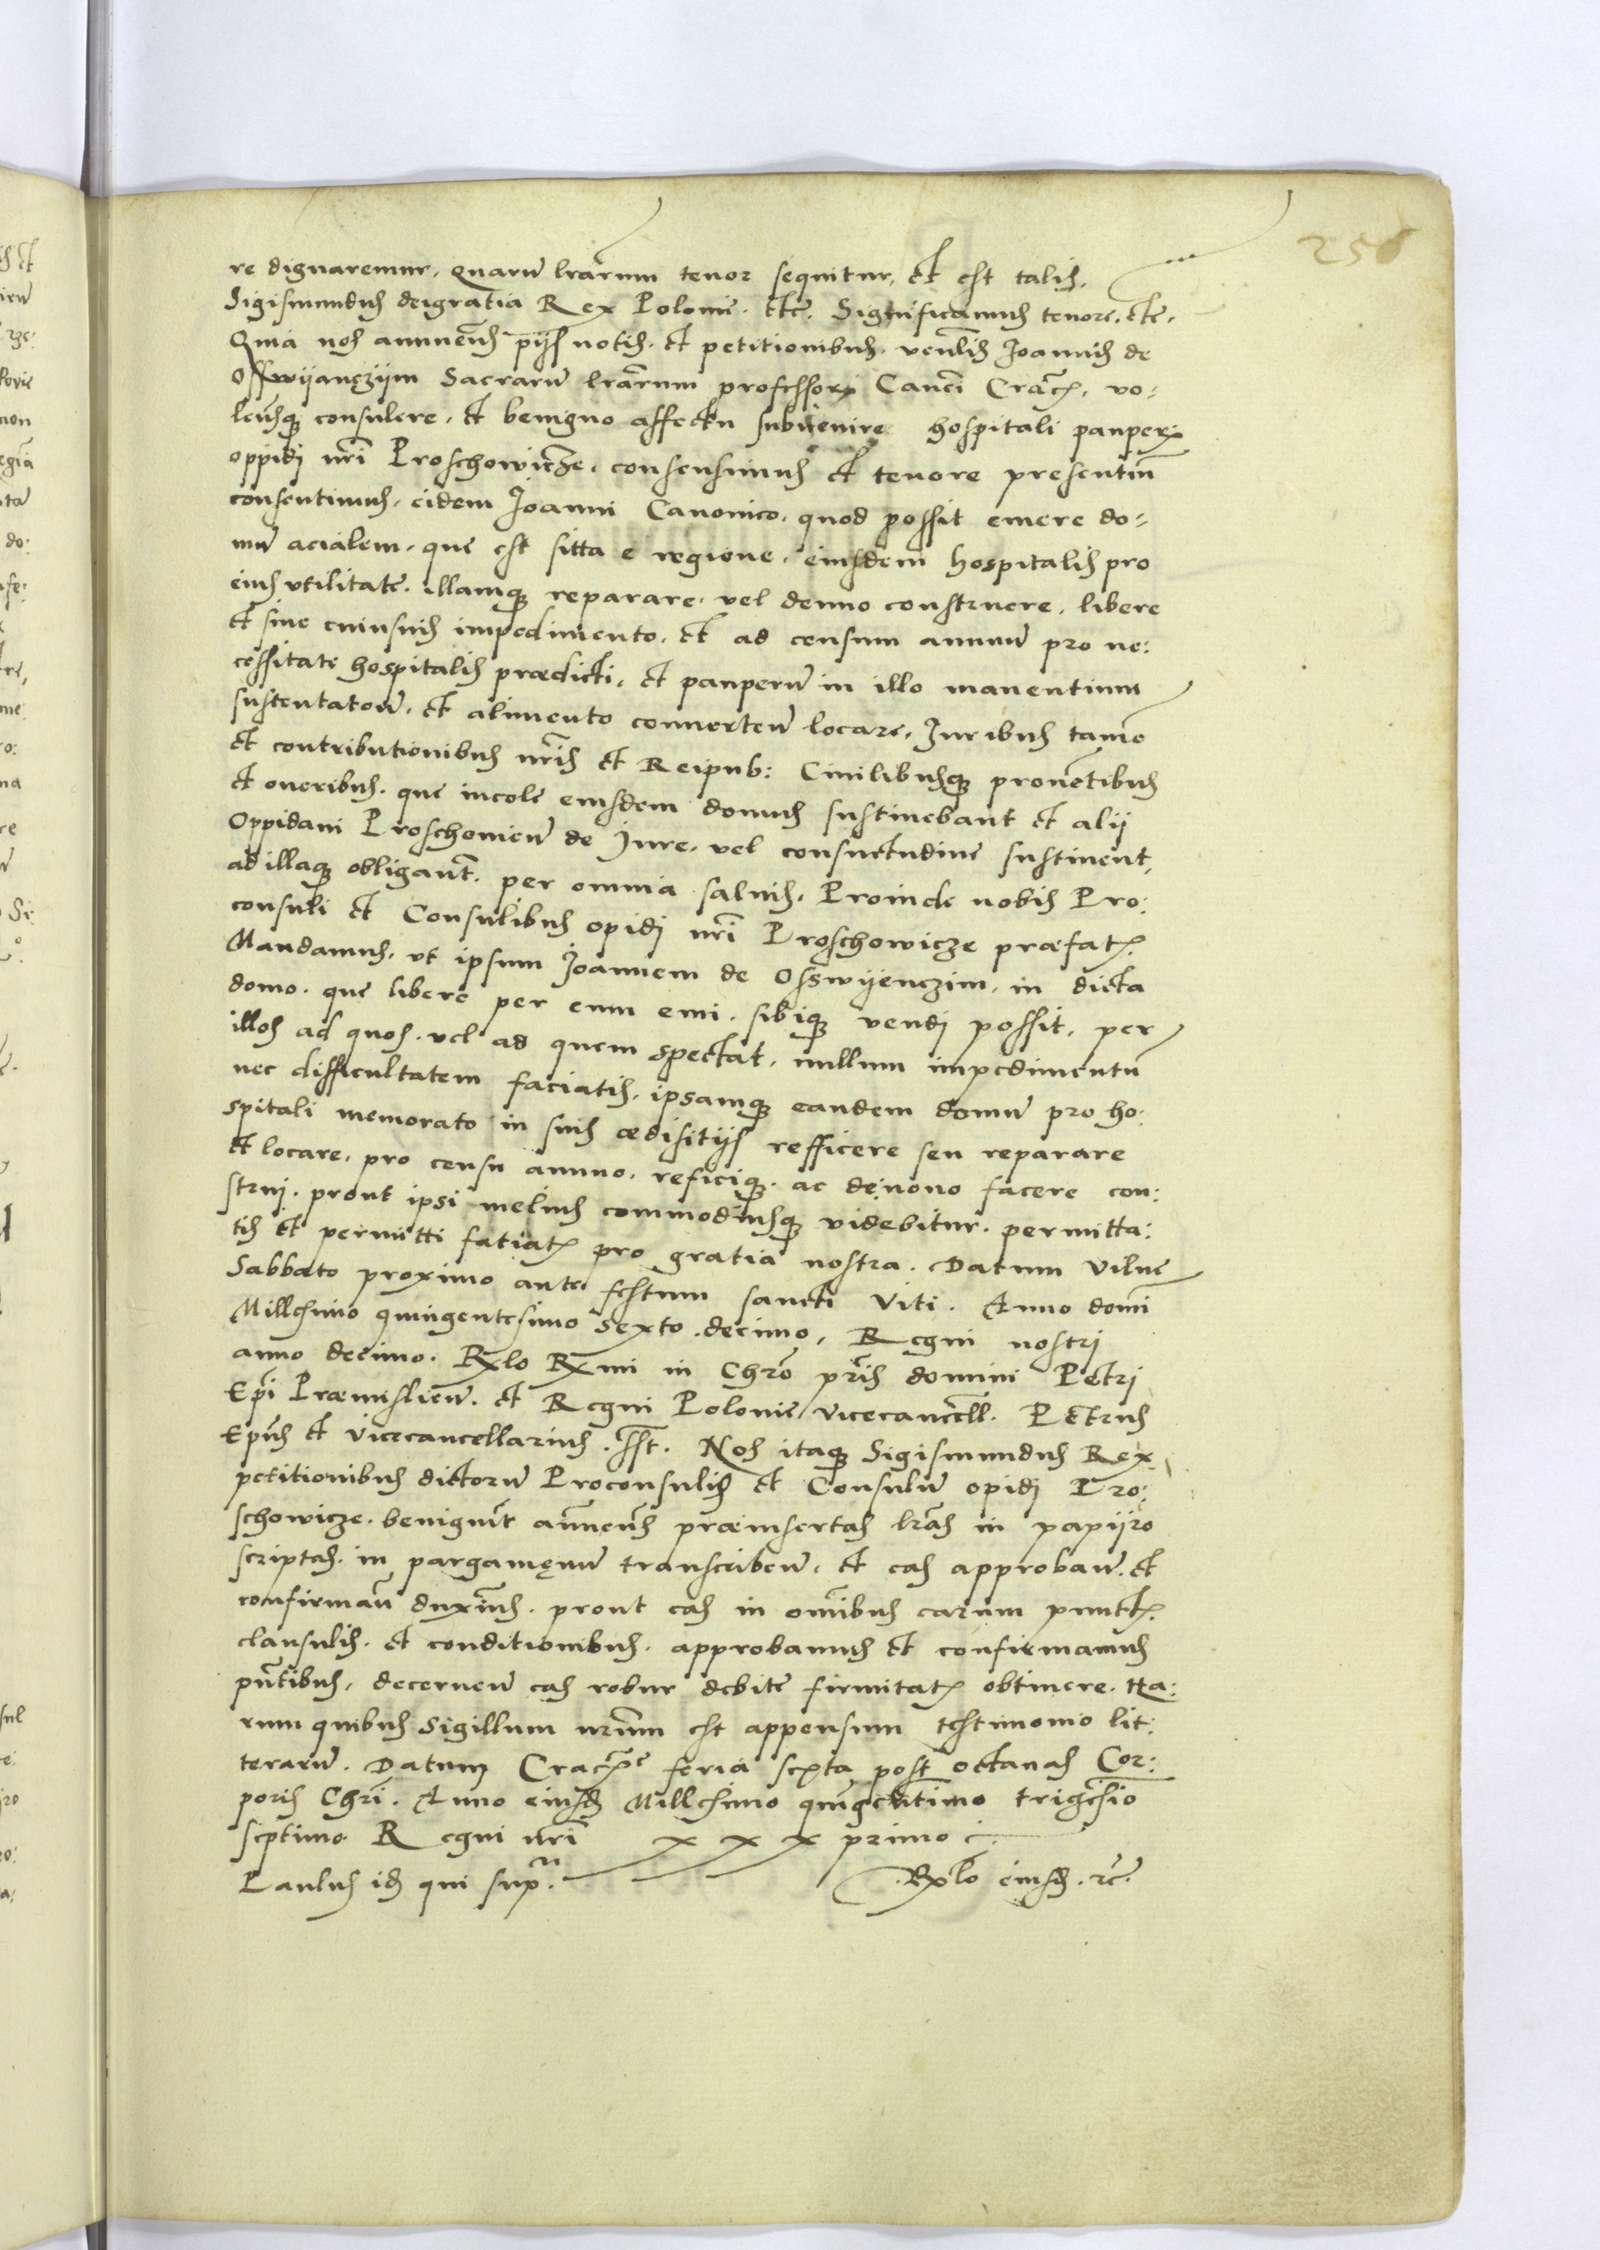 256
re dignaremur, quarũ lrãrum tenor sequitur, et est talis,
Sigismundus deigratia Rex Polonie. etc. Significamus tenore, etc.
Quia nos annuẽn̄s pijs votis. et petitionibus. venlĩs Joannis de
Osswijanczijm Sacrarũ lrãrum professoris Canci Crac̃. vo-
len̄sq̃ consulere, et benigno affectu subuenire hospitali pauperũ
oppidi nrĩ Proschowicze. consensimus et tenore presentiũ
consentimus. eidem Joanni Canonico. quod possit emere do-
mũ acialem. que est sitta e regione. eiusdem hospitalis pro
eius vtilitate. illamq̃ reparare. vel denuo construere. libere
et sine cuiusuis impedimento. et ad censum annuũ pro ne:
cessitate hospitalis prædicti, et pauperũ in illo manentium
sustentatoñ. et alimento conuerteñ locare, Juribus tamẽ
et contributionibus nrĩs et Reipub: Ciuilibusq̃ prouẽtibus
et oneribus. que incole eiusdem domus sustinebant et alij
Oppidani Proschouieñ de Jure. vel consuetudine sustinent,
ad illaq̃ obligant̃. per omnia saluis. Proinde vobis Pro:
consuli et Consulibus opidi nrĩ Proschowicze præfat̃.
Mandamus. ut ipsum Joannem de Osswijenczim. in dicta
domo. que libere per eum emi. sibiq̃ vendi possit, per
illos ad quos. vel ad quem spectat. nullum impedimentũ
nec difficultatem faciatis. ipsamq̃ eandem domũ pro ho:
spitali memorato in suis ædifitijs refficere seu reparare
et locare. pro censu annuo. reficiq̃. ac de nouo facere con:
strui. prout ipsi melius commodiusq̃ videbitur. permitta:
tis et permitti fatiat̃ pro gratia nostra. Datum Vilne
Sabbato proximo ante festum sancti Viti. Anno domi
Millesimo quingentesimo sexto decimo, Regni nostri
anno decimo. Rx̃lo Rx̃mi in Chrõ prĩs domini Petri
Epĩ Præmislieñ. et Regni Polonie vicecancell. Petrus
Epũs et vicecancellarius. sst. Nos itaq̃ Sigismundus Rex
petitionibus dictorũ Proconsulis et Consulũ opidi Pro:
schowicze. benignit̃ annuen̄s præinsertas lrãs in papijro
scriptas. in pargamęnũ transcribeñ. et eas approbañ. et
confirmañ duxim̃us. prout eas in omĩbus earum punct̃.
clausulis. et conditionibus. approbamus et confirmamus
pñtibus, decerneñ eas robur debite firmitat̃ obtinere. Ha:
rum quibus Sigillum nrũm est appensum testimonio lit:
terarũ. Datum Crac̃e feria sexta post octauas Cor:
poris Chrĩ. Anno eiusd̃ Millesimo quĩgentimo trigesĩo
septimo Regni nrĩ x x x primo
Paulus id̃ qui sup̃.
Rx̃lo eiusd̃. rc̃.